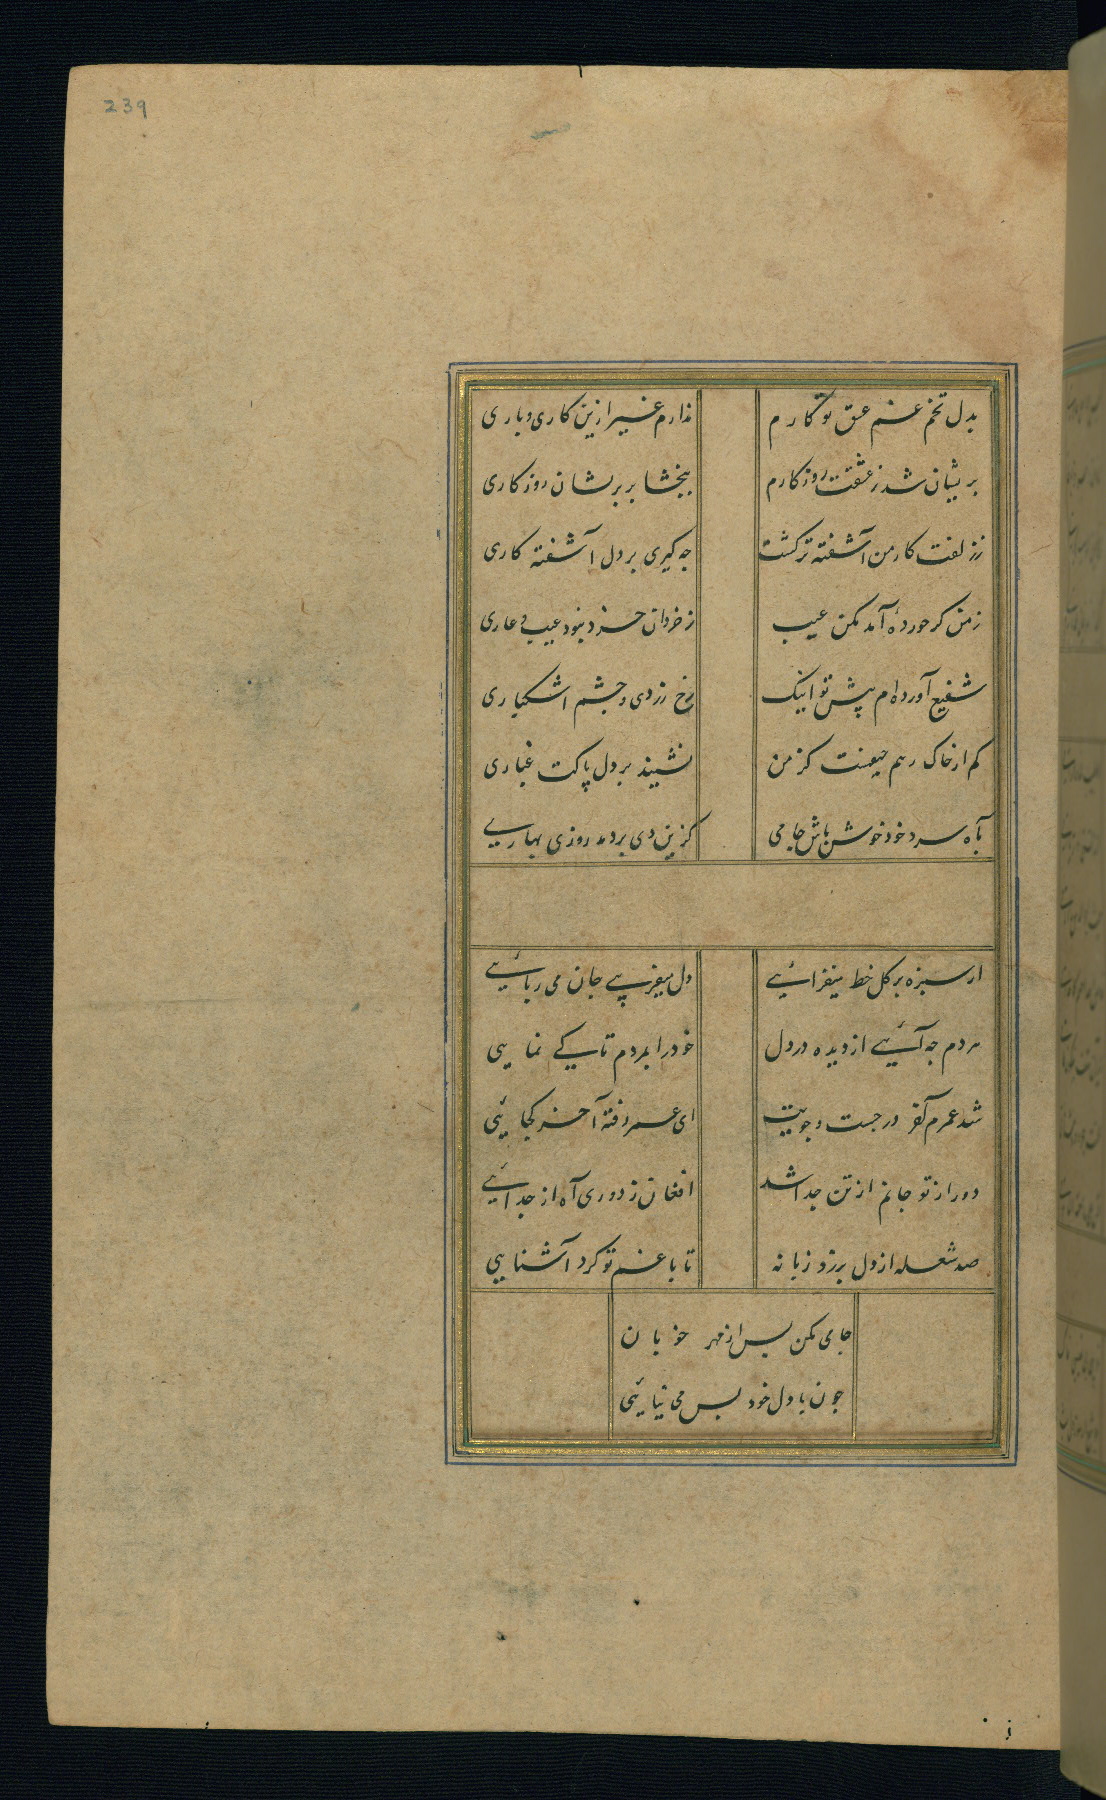 239
بدل تخم غم عشق تو کارم ندارم غیر ازین کاری و باری
بریشان شد ز عشقت روزکارم ببخشا بر بریشان روزکاری
ز زلفت کار من آشفته تر کشت جه کیری بر دل آشفته کاری
ز من کر خوردهٔ آمد مکن عیب ز خردان خرد نبود عیب و عاری
شفیع آورده ام پیش تو اینک رخ زردی و چشم اشکباری
کم از خاک رهم حیفست کز من نشیند بر دل پاکت غباری
بآه سرد خود خوش باش جامی کزین دی بردمد روزی بهاری
از سبزه بر کل خط میفزائی دل میفریبی جان می ربائی
مردم جه آئی از دیده در دل خود را بمردم تا کی نمایی
شد عمرم آخر در جست و جویت ای عمر رفته آخر کجائی
دور از تو جانم از تن جدا شد افغان ز دوری آه از جدائی
صد شعله از دل برزد زبانه تا با غم تو کرد آشنایی
جامی مکن بس از مهر خوبان
جون با دل خود بس می نیائی